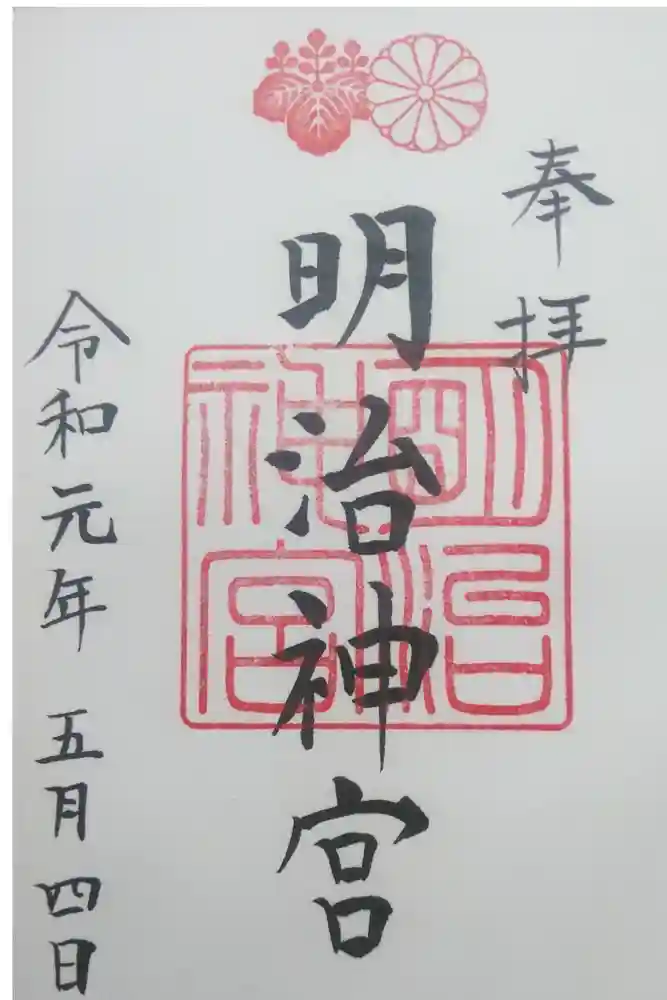 奉拝
明治神宮
明治神宮
令和元年 五月四日